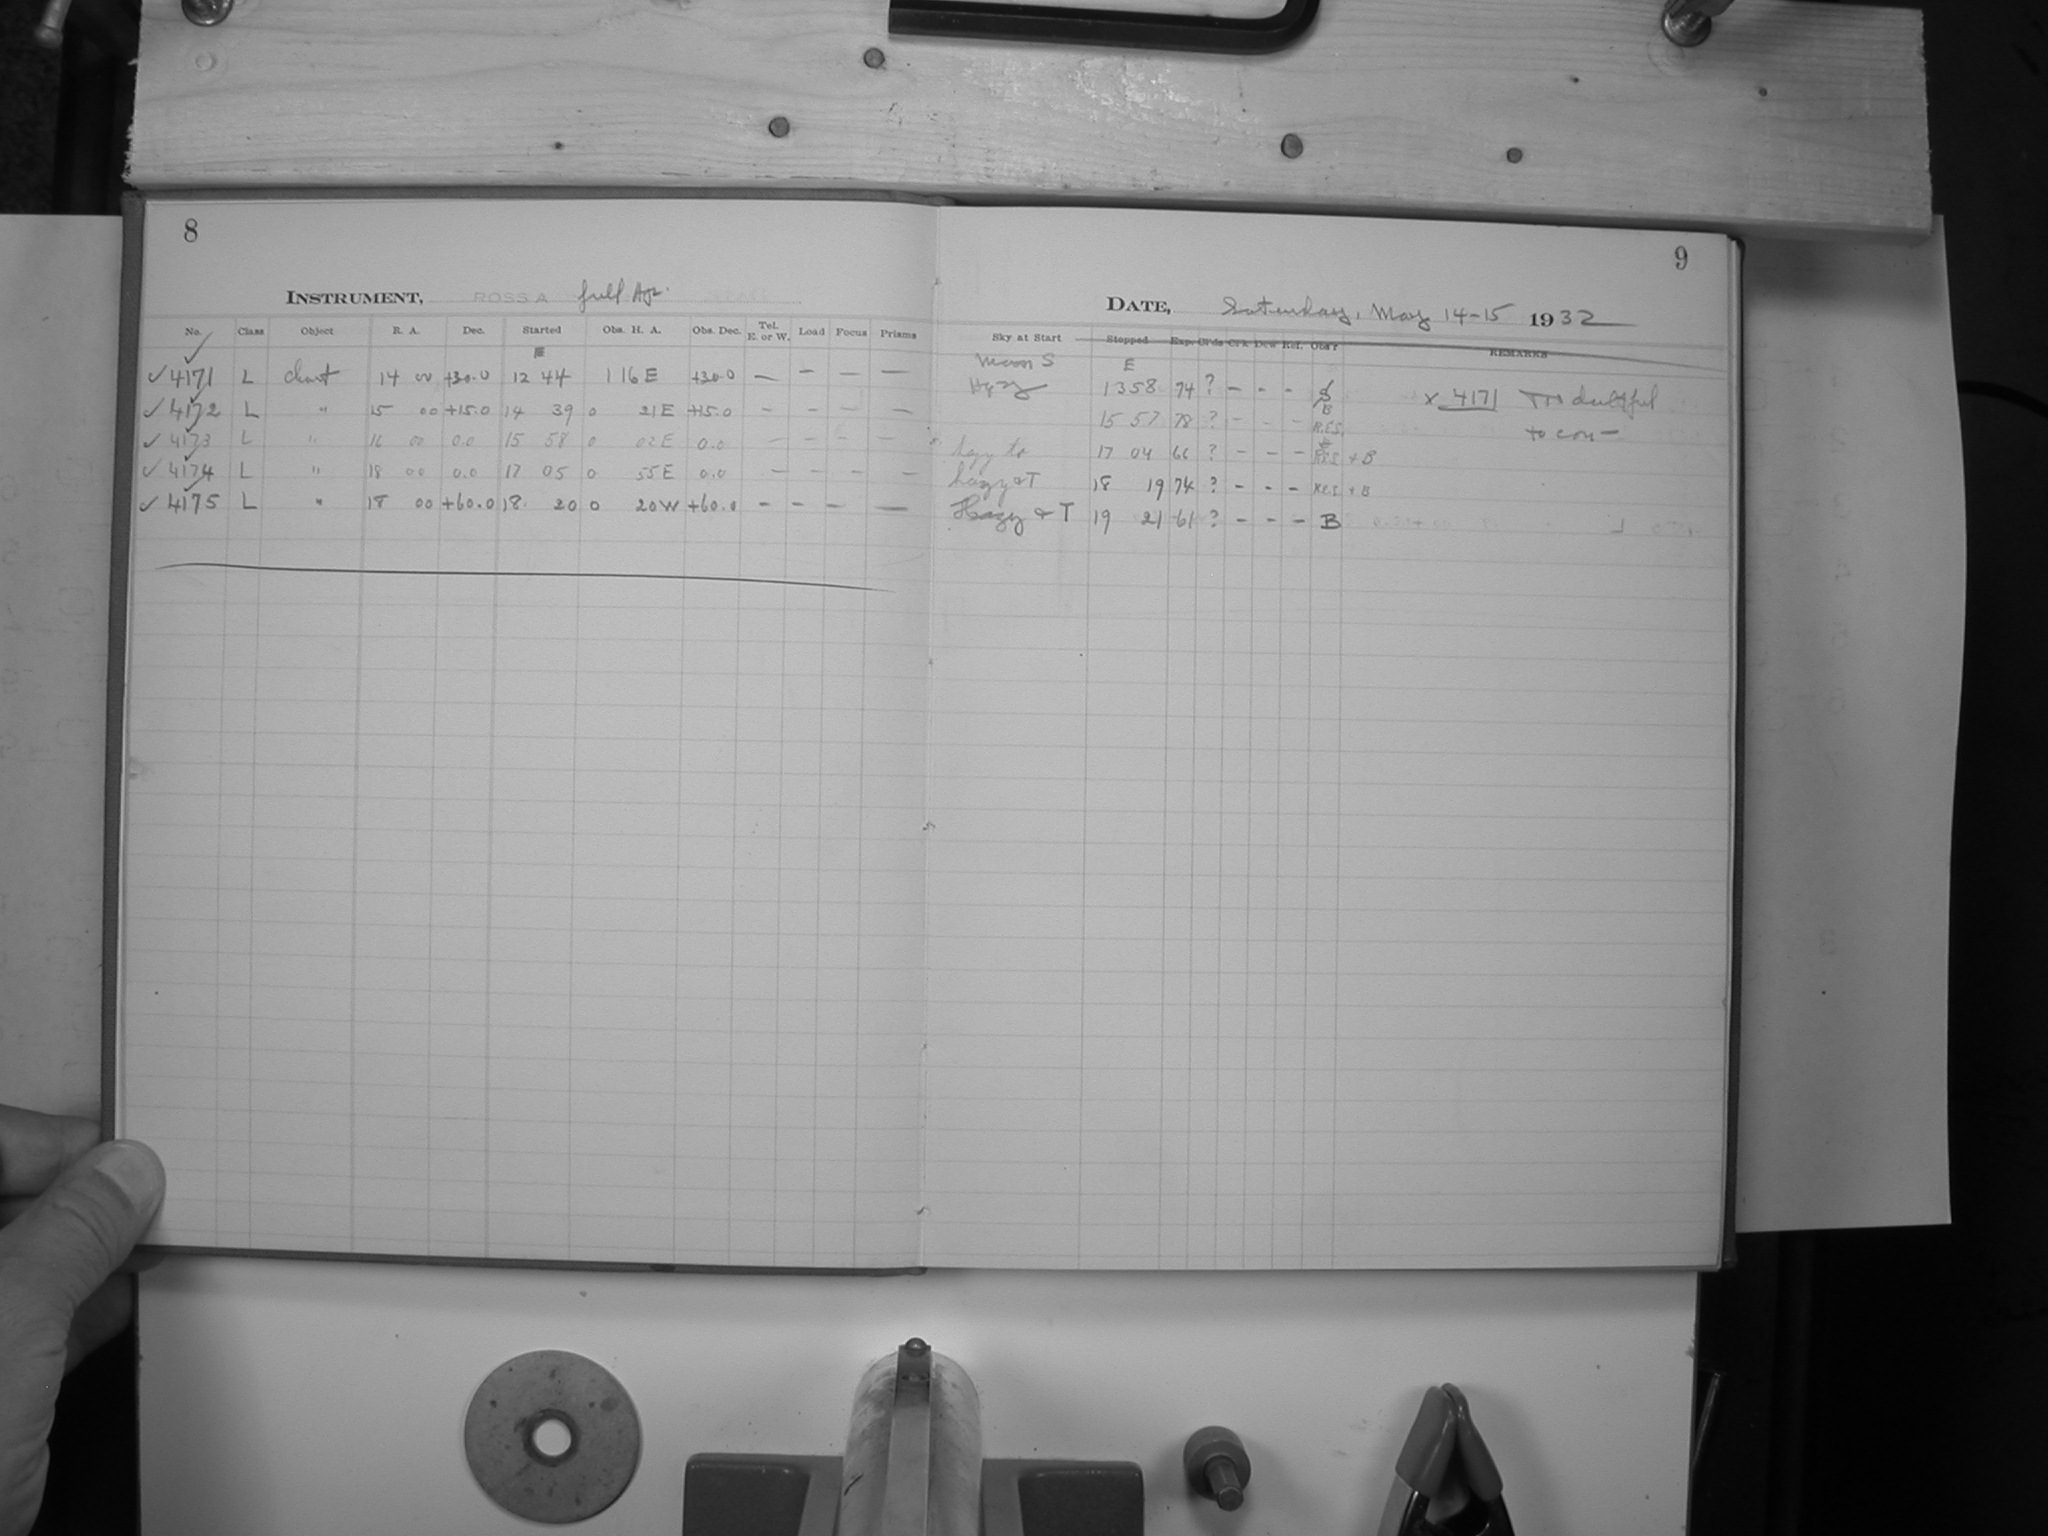 8
INSTRUMENT, ROSS A full Ap.
No. Class Object R. A. Dec. Started Obs. H. A. Obs. Dec. Tel. E. or W. Load Focus Prisms
✓ 4171 L chart 14 00 +30.0 12 44 1 16 E +30.0 — — — —
✓ 4172 L " 15 00 +15.0 14 39 0 21 E +15.0 — — — —
✓ 4173 L " 16 00 0.0 15 58 0 02 E 0.0 — — — —
✓ 4174 L " 18 00 0.0 17 05 0 55 E 0.0 — — — —
✓ 4175 L " 18 00 +60.0 18 20 0 20 W +60.0 — — — —
9
DATE, Saturday, May 14-15 1932
Sky at Start Stopped Exp. Cl'ds Clk Dew Ref. Obs'r REMARKS
Moon S E
Hazy 13 58 74 ? - - - x 4171 doubtful
15 57 78 ? - - - R.E.S. to con—
hazy to 17 04 66 ? - - - R.E.S. + B
hazy & T 18 19 74 ? - - - R.E.S. + B
Hazy & T 19 21 61 ? - - - B